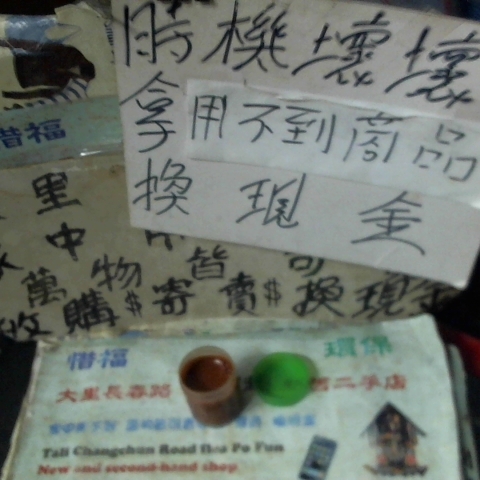 時機壞壞
拿用不到商品
換現金
惜福
里
中
萬物皆可
收購$寄賣$換現金
惜福 環保
大里長春路 二手店
Tali Changchun Road Hsa Po Fun
New and second-hand shop